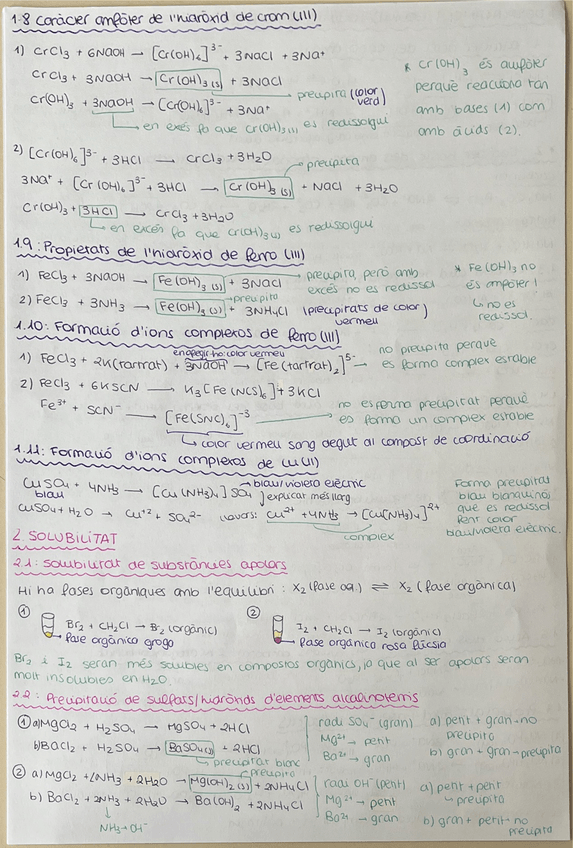 1.8 caràcter amfòter de l'hidròxid de crom (III)
1) CrCl3 + 6NaOH → [Cr(OH)6]3- + 3NaCl + 3Na+
CrCl3 + 3NaOH → Cr(OH)3 (s) + 3NaCl
precipita (color verd)
Cr(OH)3 + 3NaOH → [Cr(OH)6]3- + 3Na+
en excés fa que Cr(OH)3(s) es redissolgui
* Cr(OH)3 és amfòter
perquè reacciona tan
amb bases (1) com
amb àcids (2).
2) [Cr(OH)6]3- + 3HCl → CrCl3 + 3H2O
precipita
3Na+ + [Cr(OH)6]3- + 3HCl → Cr(OH)3 (s) + NaCl + 3H2O
Cr(OH)3 + 3HCl → CrCl3 + 3H2O
en excés fa que Cr(OH)3(s) es redissolgui
1.9: Propietats de l'hidròxid de ferro (III)
1) FeCl3 + 3NaOH → Fe(OH)3 (s) + 3NaCl
precipita, però amb
excés no es redissol
2) FeCl3 + 3NH3 → Fe(OH)3 (s) + 3NH4Cl
precipita
(precipitats de color vermell)
* Fe(OH)3 no
és amfòter!
↳ no es
redissol.
1.10: Formació d'ions complexos de ferro (III)
en afegir-ho: color vermell
1) FeCl3 + 2K(tartrat) + 3NaOH → [Fe(tartrat)2]5-
no precipita perquè
es forma complex estable
2) FeCl3 + 6KSCN → K3[Fe(NCS)6] + 3KCl
Fe3+ + SCN- → [Fe(SNC)6]-3
no es forma precipitat perquè
es forma un complex estable
color vermell sang degut al compost de coordinació
1.11: Formació d'ions complexos de Cu(II)
CuSO4 + 4NH3 → [Cu(NH3)4]SO4
blau
blau/violeta elèctric
explicat més llarg
CuSO4 + H2O → Cu+2 + SO42- llavors: Cu2+ + 4NH3 → [Cu(NH3)4]2+
complex
Forma precipitat
blau blanquinós
que es redissol
fent color
blau/violeta elèctric.
2. SOLUBILITAT
2.1: solubilitat de substàncies apolars
Hi ha fases orgàniques amb l'equilibri: X2 (fase aq.) ⇌ X2 (fase orgànica)
① Br2 + CH2Cl → Br2 (orgànic)
fase orgànica groga
② I2 + CH2Cl → I2 (orgànic)
fase orgànica rosa fúcsia
Br2 i I2 seran més solubles en compostos orgànics, ja que al ser apolars seran
molt insolubles en H2O.
2.2: Precipitació de sulfats/hidròxids d'elements alcalinoterris
① a) MgCl2 + H2SO4 → MgSO4 + 2HCl
b) BaCl2 + H2SO4 → BaSO4(s) + 2HCl
precipitat blanc
radi SO4- (gran)
Mg2+ → petit
Ba2+ → gran
a) petit + gran → no
precipita
b) gran + gran → precipita
② a) MgCl2 + 2NH3 + 2H2O → Mg(OH)2 (s) + 2NH4Cl
precipita
b) BaCl2 + 2NH3 + 2H2O → Ba(OH)2 + 2NH4Cl
NH3 → OH-
radi OH- (petit)
Mg2+ → petit
Ba2+ → gran
a) petit + petit
↳ precipita
b) gran + petit → no
precipita